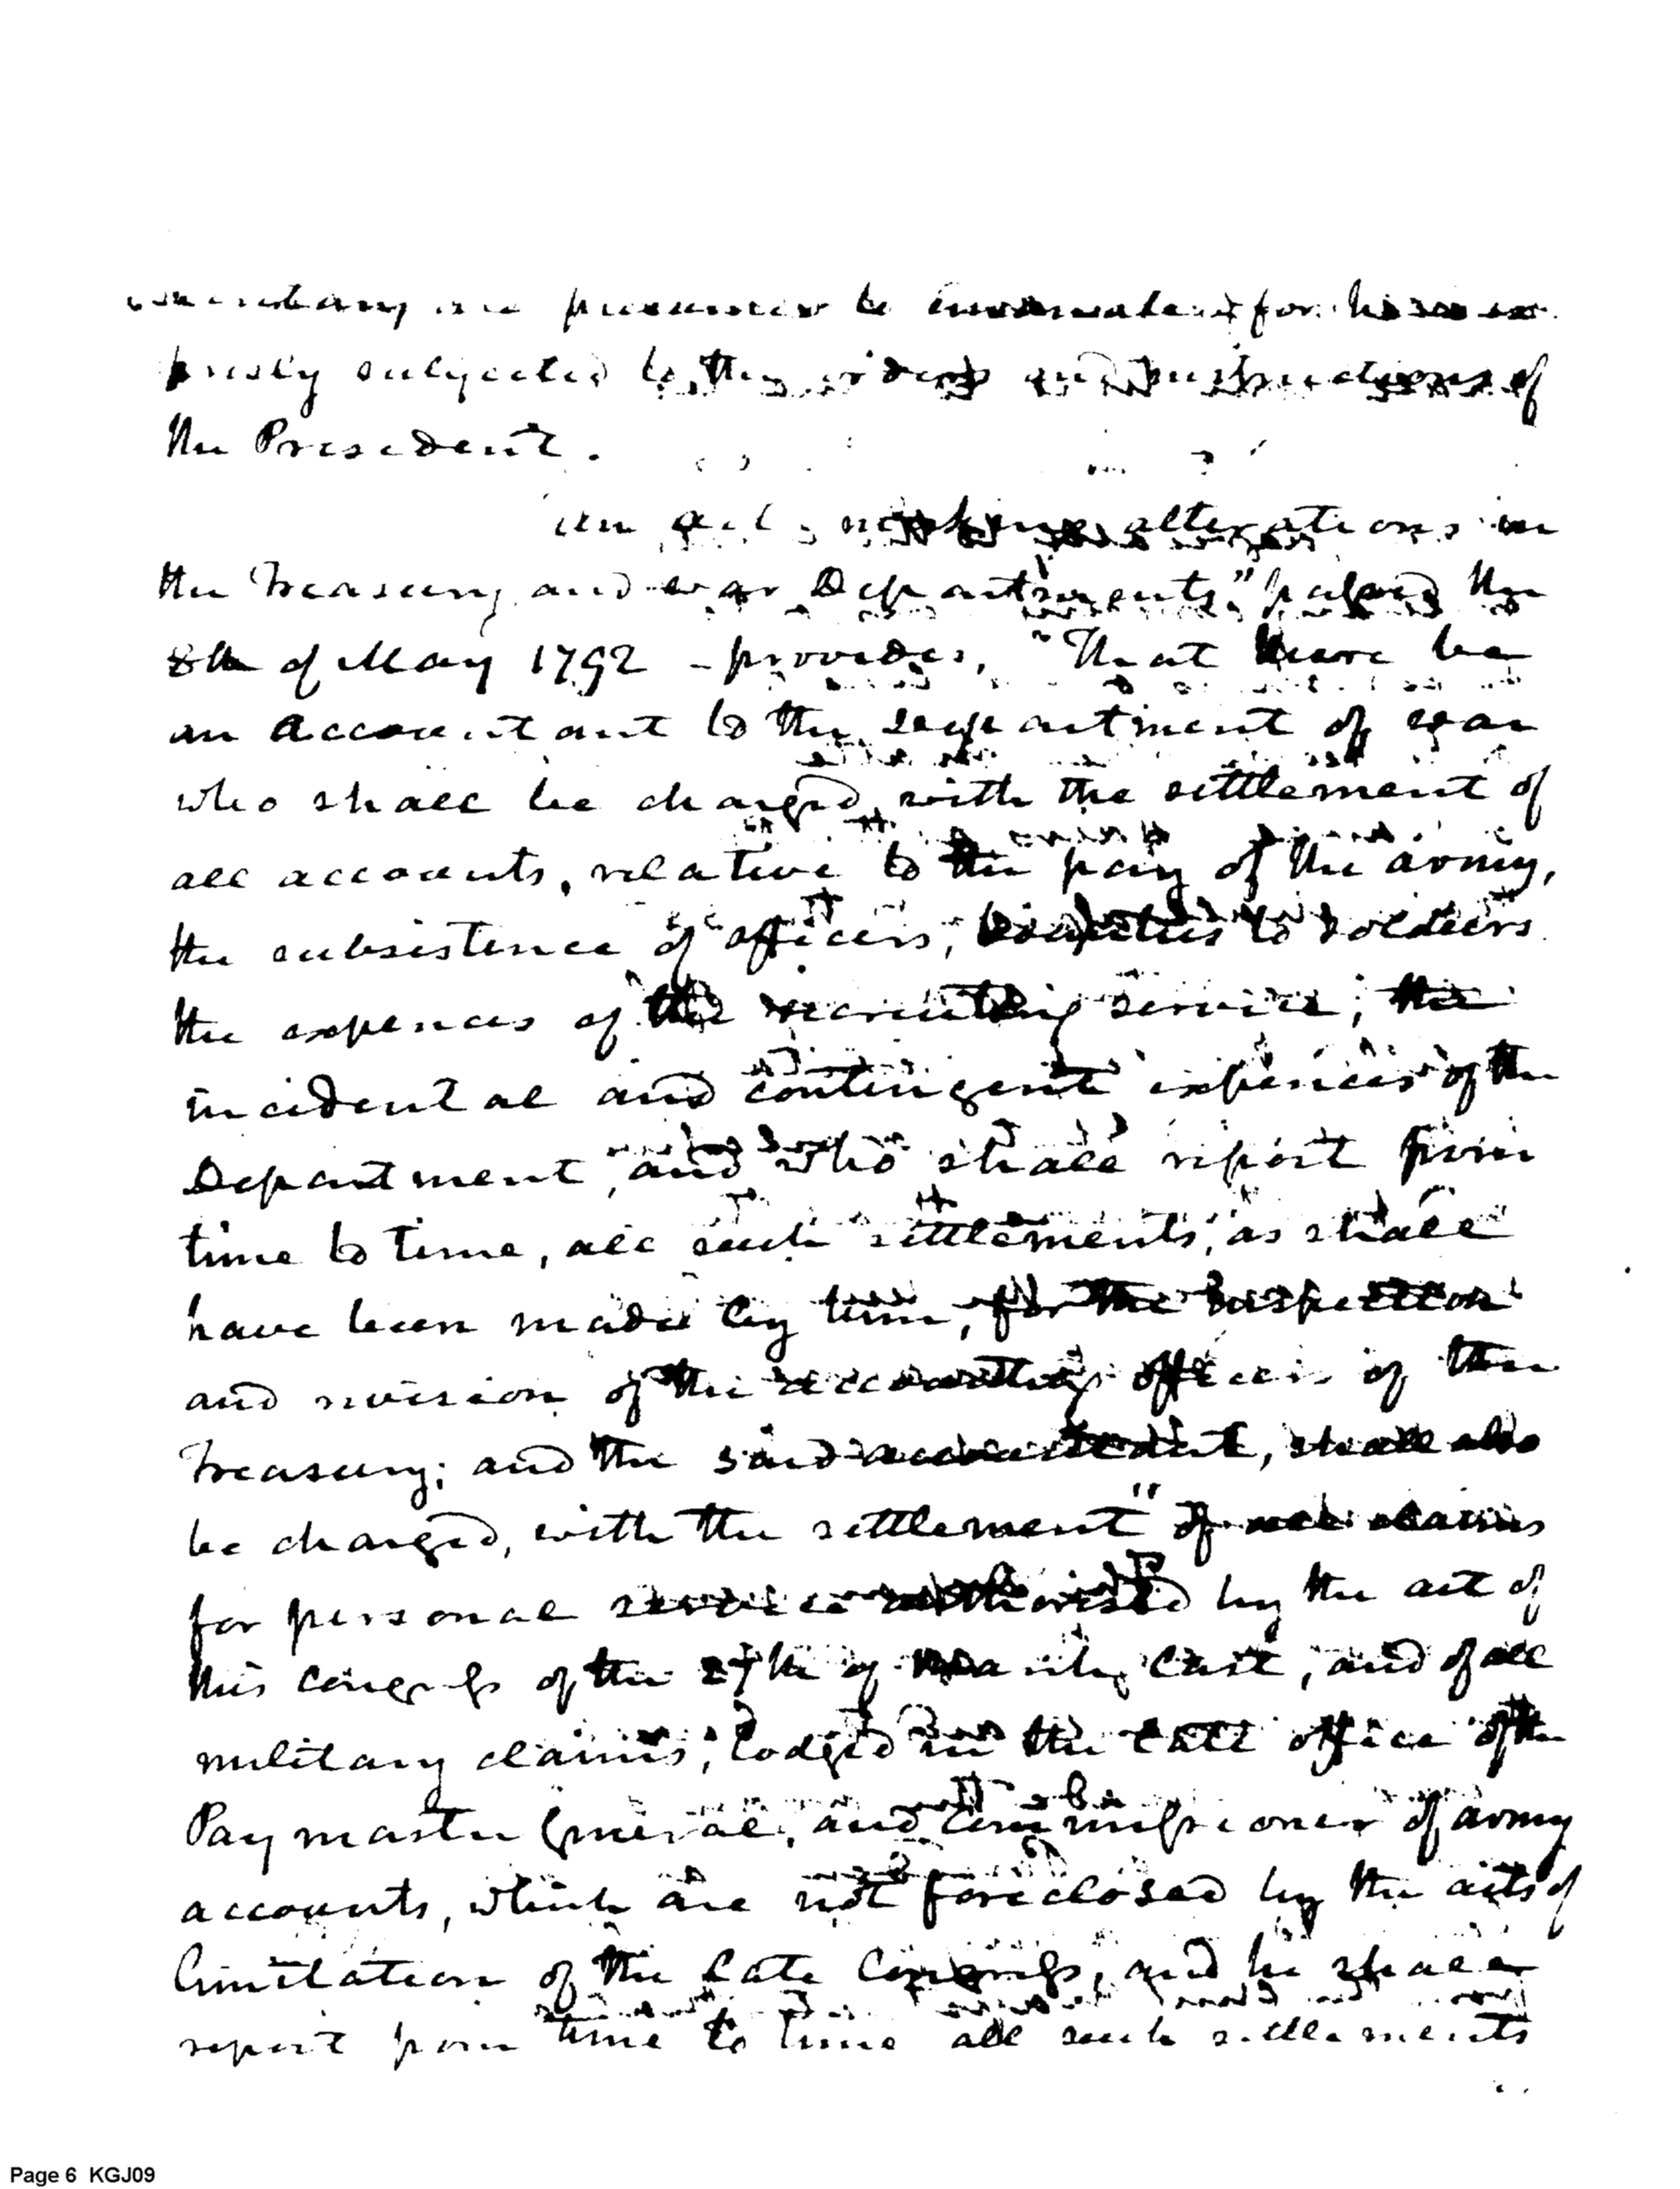 to
prisly subjected to the orders and instructions of
the President.
An act making alterations in
the Treasury and war Departments," passed the
8th of May 1792 - provides, "That there be
an Accountant to the department of war
who shall be charged with the settlement of
all accounts, relative to the pay of the army,
the subsistence of officers, bounties to soldiers
the expences of the recruiting service; the
incidental and contingent expences of the
Department, and who shall report from
time to time, all such settlements, as shall
have been made by him, for the inspection
and revision of the accounting officers of the
Treasury; and the said accountant, shall also
be charged, with the settlement" of all claims
for personal service authorised by the act of
this Congress of the 27th of March, last, and of all
military claims, lodged in the late office of the
Pay master General, and Commissioner of army
accounts, which are not foreclosed by the acts of
limitation of the late Congress, and he shall
report from time to time all such settlements
Page 6 KGJ09